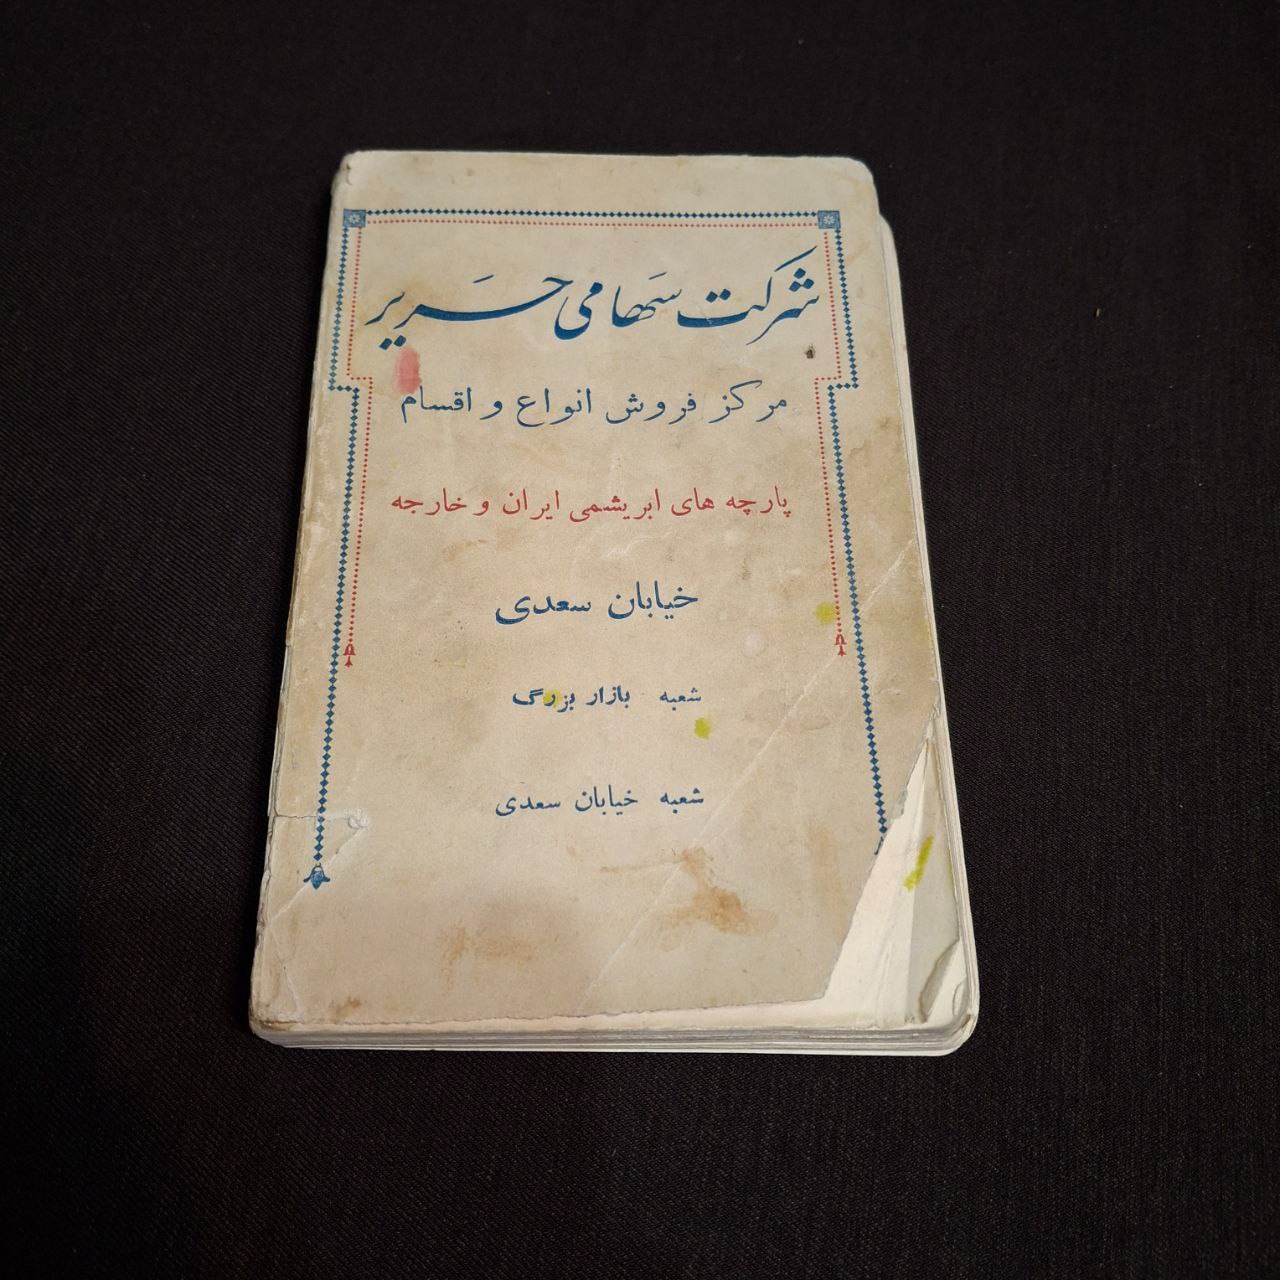 شرکت سهامی حریر
مرکز فروش انواع و اقسام
پارچه های ابریشمی ایران و خارجه
خیابان سعدی
شعبه بازار بزرگ
شعبه خیابان سعدی